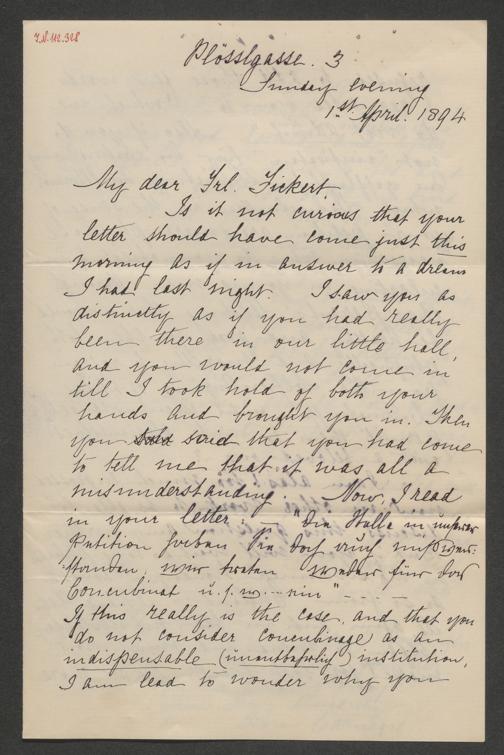 I.N. 112.328
Plösslgasse. 3
Sunday evening
1st April. 1894
My dear Frl. Fickert,
Is it not curious that your
letter should have come just this
morning as if in answer to a dream
I had last night. I saw you as
distinctly as if you had really
been there in our little hall,
and you would not come in
till I took hold of both your
hands and brought you in. Then
you said that you had come
to tell me that it was all a
misunderstanding. Now, I read
in your letter; — "Die Stelle in unserer
Petition haben Sie doch auch mißver-
standen, wir treten weder für das
Concubinat u.s.w. ... ein" - - - -
If this really is the case, and that you
do not consider concubinage as an
indispensable (unentbehrlich) institution,
I am lead to wonder why you